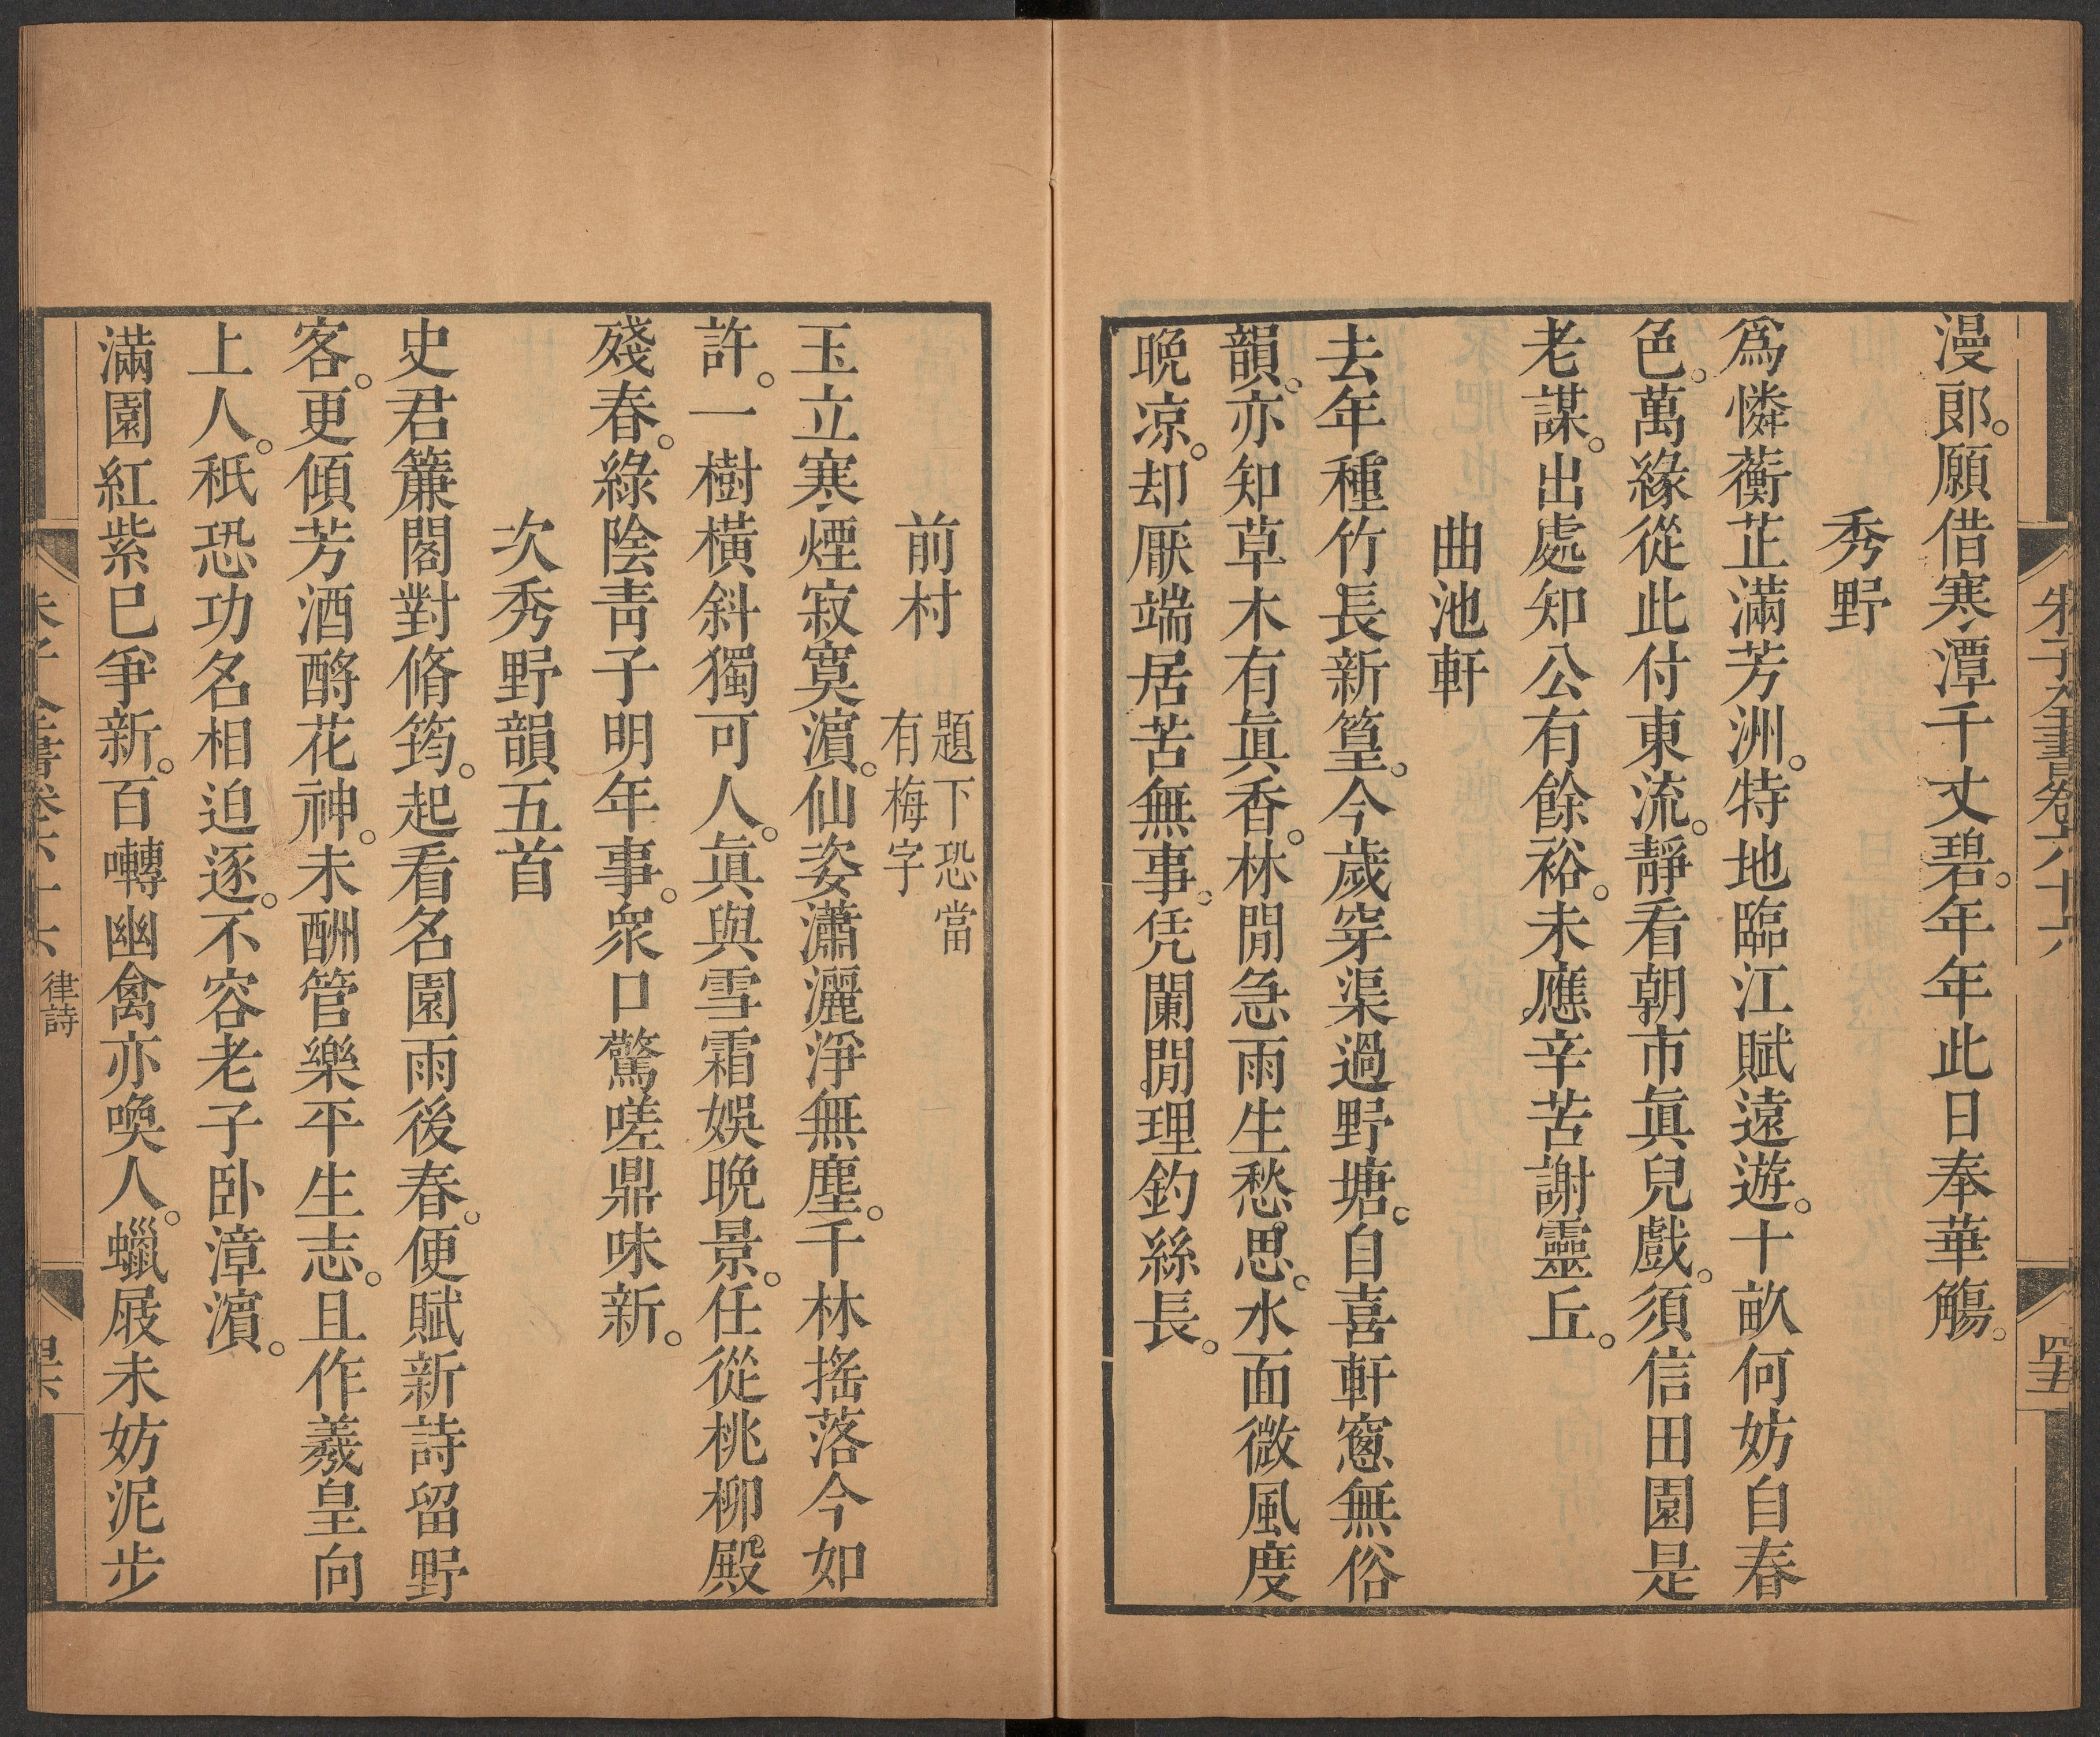 朱子全書卷六十六
四十五
漫郎。願借寒潭千丈碧。年年此日奉華觴。
秀野
爲憐蘅芷滿芳洲。特地臨江賦遠遊。十畝何妨自春
色。萬緣從此付東流。靜看朝市眞兒戲。須信田園是
老謀。出處知公有餘裕。未應辛苦謝靈丘。
曲池軒
去年種竹長新篁。今歲穿渠過野塘。自喜軒窻無俗
韻。亦知草木有眞香。林閒急雨生愁思。水面微風度
晩凉。却厭端居苦無事。凭闌閒理釣絲長。
前村
題下恐當
有梅字
玉立寒煙寂寞濱。仙姿瀟灑淨無塵。千林搖落今如
許。一樹橫斜獨可人。眞與雪霜娛晩景。任從桃柳殿
殘春。綠陰靑子明年事。衆口驚嗟鼎味新。
次秀野韻五首
史君簾閣對脩筠。起看名園雨後春。便賦新詩留野
客。更傾芳酒酹花神。未酬管樂平生志。且作羲皇向
上人。秖恐功名相迫逐。不容老子卧漳濱。
滿園紅紫已爭新。百囀幽禽亦喚人。蠟屐未妨泥步
律詩